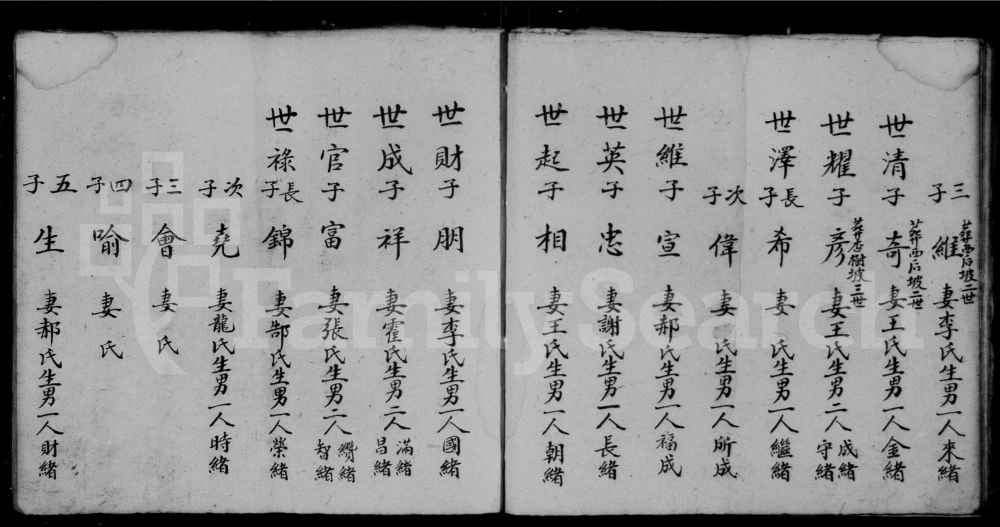 三子 維 葬西后坡二世 妻李氏生男一人來緒
世清子 奇 葬西后坡二世 妻王氏生男一人金緒
世耀子 彥 葬杏樹坡三世 妻王氏生男二人成緒守緒
世澤長子 希 妻 氏生男一人繼緒
次子 偉 妻 氏生男一人所成
世維子 宣 妻郝氏生男一人福成
世英子 忠 妻謝氏生男一人長緒
世起子 相 妻王氏生男一人朝緒
世財子 朋 妻李氏生男一人國緒
世成子 祥 妻霍氏生男二人滿緒昌緒
世官子 富 妻張氏生男二人纘緒智緒
世祿長子 錦 妻郜氏生男一人榮緒
次子 堯 妻龍氏生男一人時緒
三子 會 妻 氏
四子 喻 妻 氏
五子 生 妻郝氏生男一人財緒
FamilySearch